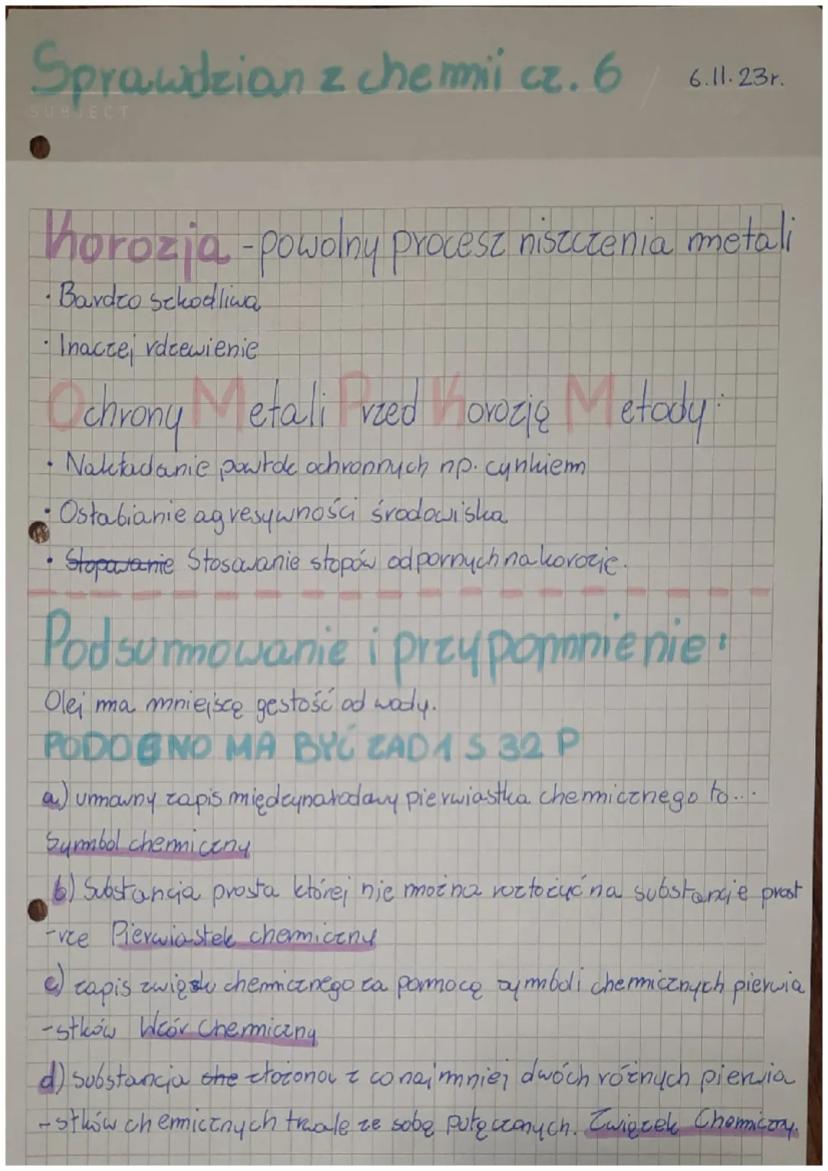 Sprawdzian z chemii cz. 6 / 6.11.23r.
SUBJECT
Korozja - powolny procesz niszczenia metali
· Bardzo szkodliwa
· Inaczej rdzewienie
Ochrony Metali Przed Korozją Metody:
· Nakładanie powłok ochronnych np. cynkiem
· Osłabianie agresywności środowiska
· Stopowanie Stosowanie stopów odpornych na korozję.
Podsumowanie i przypomnienie:
Olej ma mniejszą gęstość od wody.
PODOBNO MA BYĆ ZAD 1 S 32 P
a) umowny zapis międzynarodowy pierwiastka chemicznego to...
Symbol chemiczny
b) Substancja prosta której nie można rozłożyć na substancje prost
-rze Pierwiastek chemiczny
c) zapis związku chemicznego za pomocą symboli chemicznych pierwia
-stków Wzór Chemiczny
d) substancja złożona z co najmniej dwóch różnych pierwia
-stków chemicznych trwale ze sobą połączonych. Związek Chemiczny.